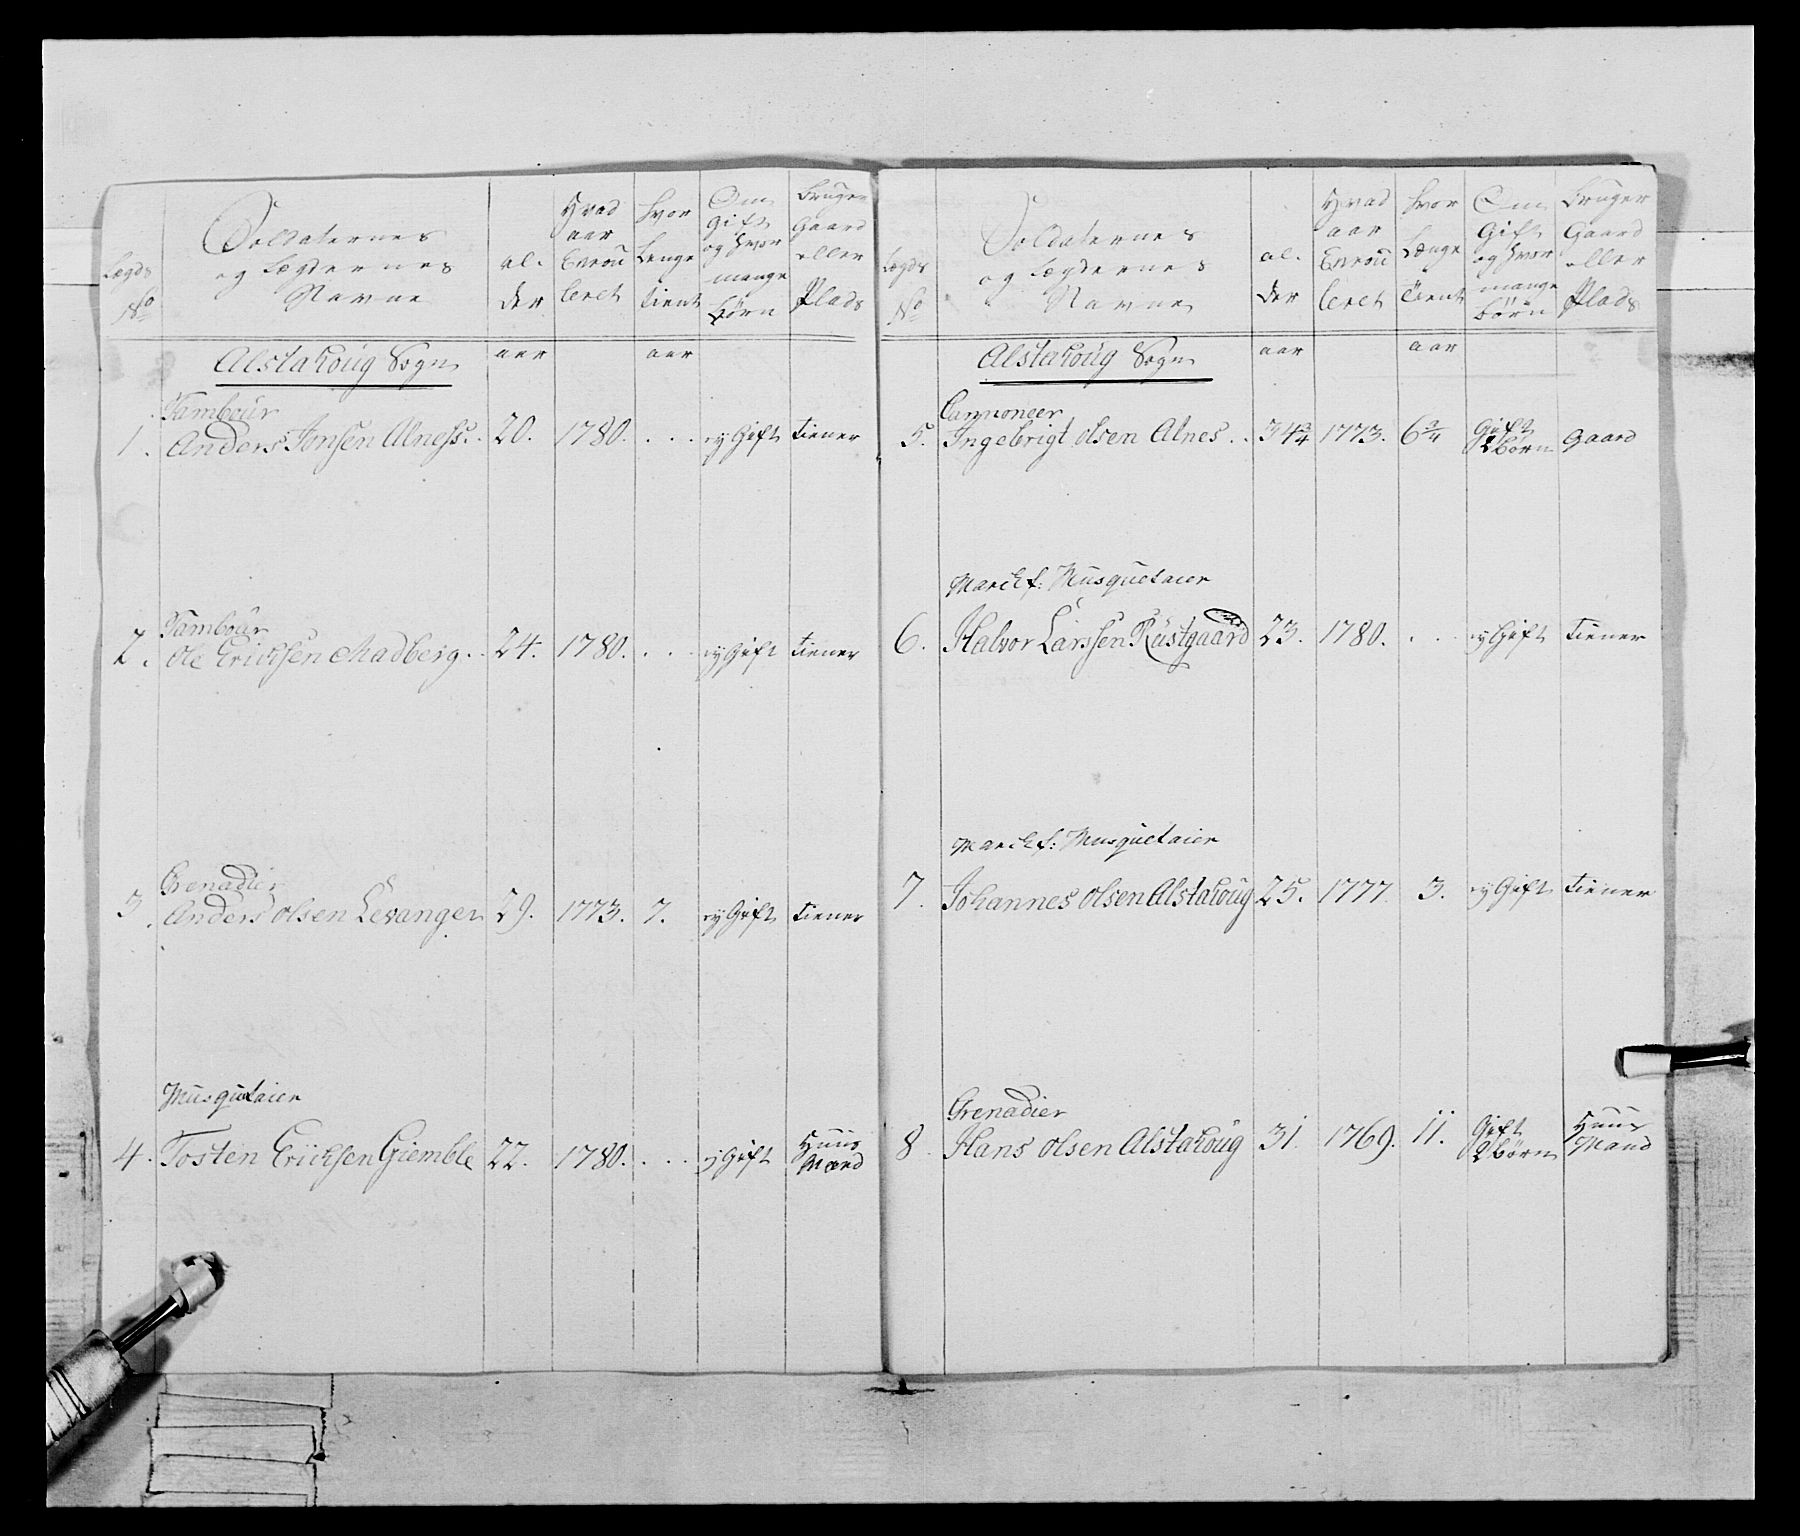 Lægds No
Soldaternes og Lægdernes Navne
al- der
Hvad aar Enrou leret
hvor Lenge tient
Om Gift og hvor mange børn
bruger Gaard eller Plads
Alstahoug Sogn
aar
aar
Tambour
1. Anders Jonsen Alness.. 20. 1780. ... ej Gift tiener
Tambour
2. Ole Ericksen Madberg.. 24. 1780. ... ej Gift tiener
Grenadier
3. Anders Olsen Levanger 29. 1773. 7. ej Gift tiener
Musquetaier
4. Tosten Ericksen Giemble 22. 1780. ... ej Gift Huus Mand
Lægds No
Soldaternes og Lægdernes Navne
al- der
Hvad aar Enrou leret
hvor Længe tient
Om Gift og hvor mange børn
bruger Gaard eller Plads
Alstahoug Sogn
aar
aar
Cannoneer
5. Ingebrigt Olsen Alnes.. 34 3/4 1773. 6 3/4 Gift 2 børn Gaard
March f: Musquetaier
6. Halvor Larssen Rüstgaard 23. 1780. .. ej Gift tiener
March f: Musquetaier
7. Johannes Olsen Alstahoug 25. 1777. 3. ej Gift tiener
Grenadier
8. Hans Olsen Alstahoug 31. 1769. 11. Gift 2 børn Huus Mand